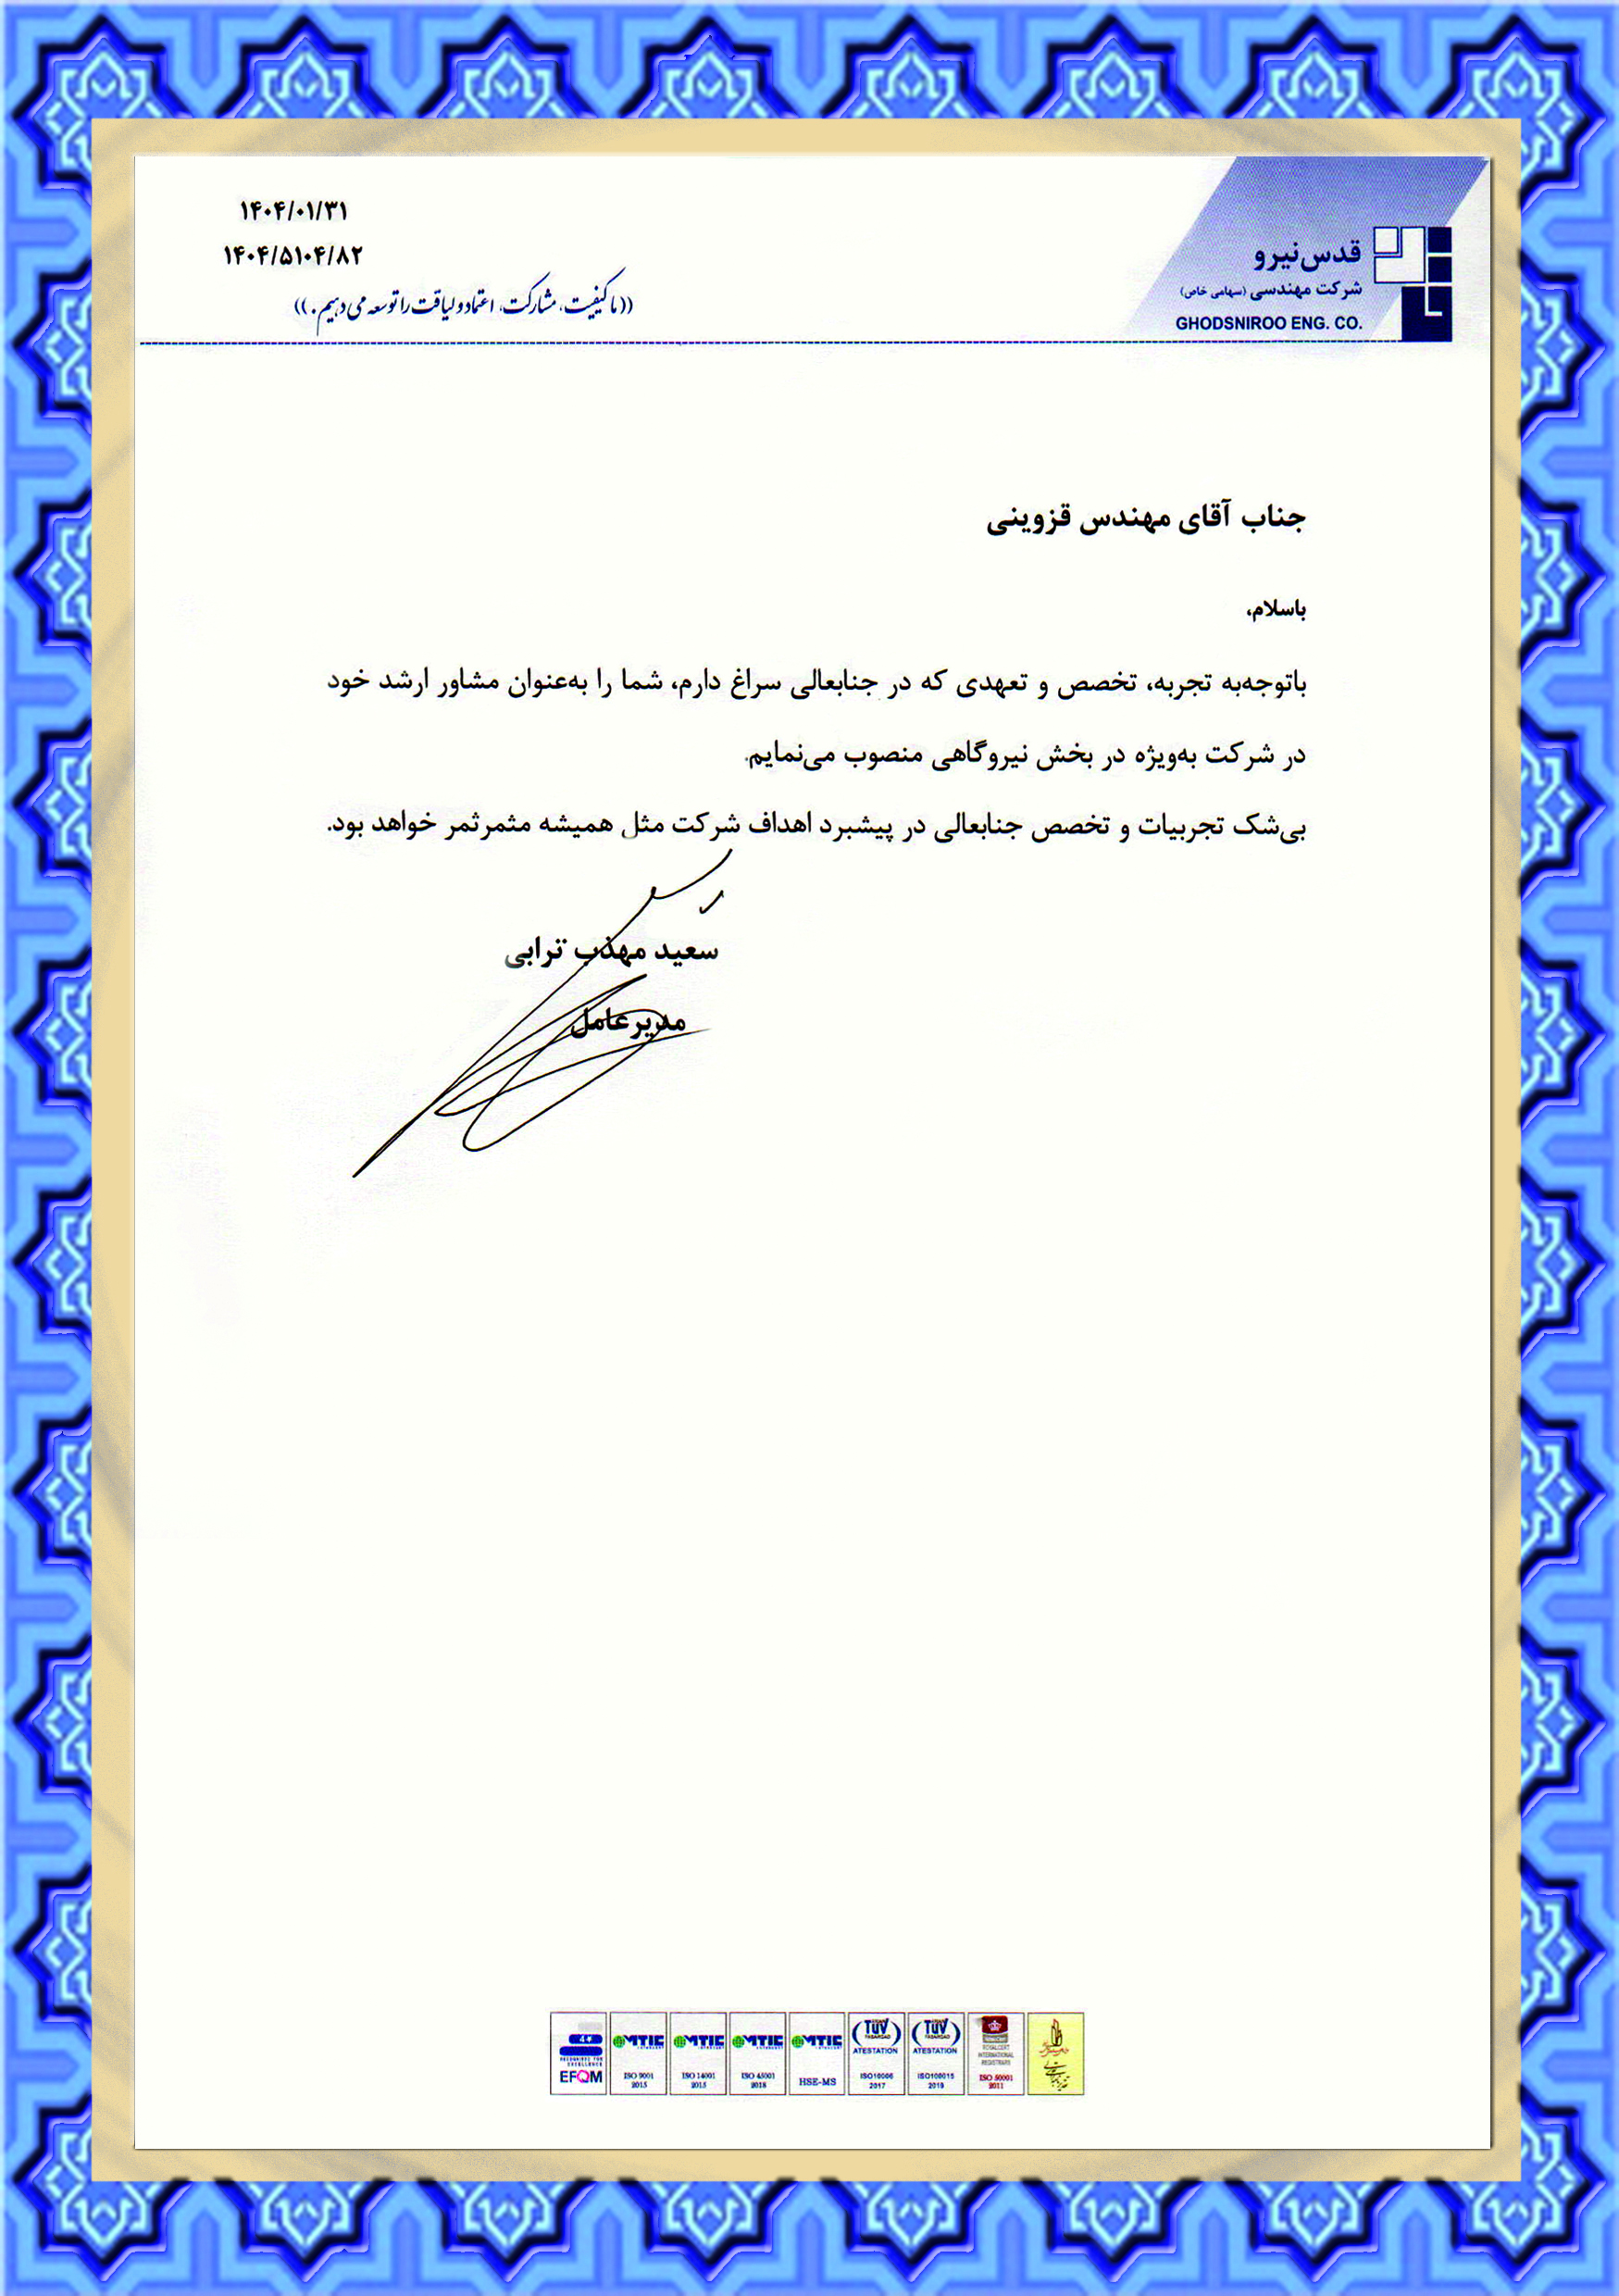 ۱۴۰۴/۰۱/۳۱
۱۴۰۴/۵۱۰۴/۸۲
((ما کیفیت، مشارکت، اعتماد و لیاقت را توسعه می دهیم.))
قدس‌نیرو
شرکت مهندسی (سهامی خاص)
GHODSNIROO ENG. CO.
جناب آقای مهندس قزوینی
باسلام،
باتوجه‌به تجربه، تخصص و تعهدی که در جنابعالی سراغ دارم، شما را به‌عنوان مشاور ارشد خود
در شرکت به‌ویژه در بخش نیروگاهی منصوب می‌نمایم.
بی‌شک تجربیات و تخصص جنابعالی در پیشبرد اهداف شرکت مثل همیشه مثمرثمر خواهد بود.
سعید مهذب ترابی
مدیرعامل
EFQM
MTIC
ISO 9001
2015
MTIC
ISO 14001
2015
MTIC
ISO 45001
2018
MTIC
HSE-MS
TÜV
ATESTATION
ISO10006
2017
TÜV
ATESTATION
ISO100015
2019
ROYALCERT
INTERNATIONAL
REGISTRARS
ISO 50001
2011